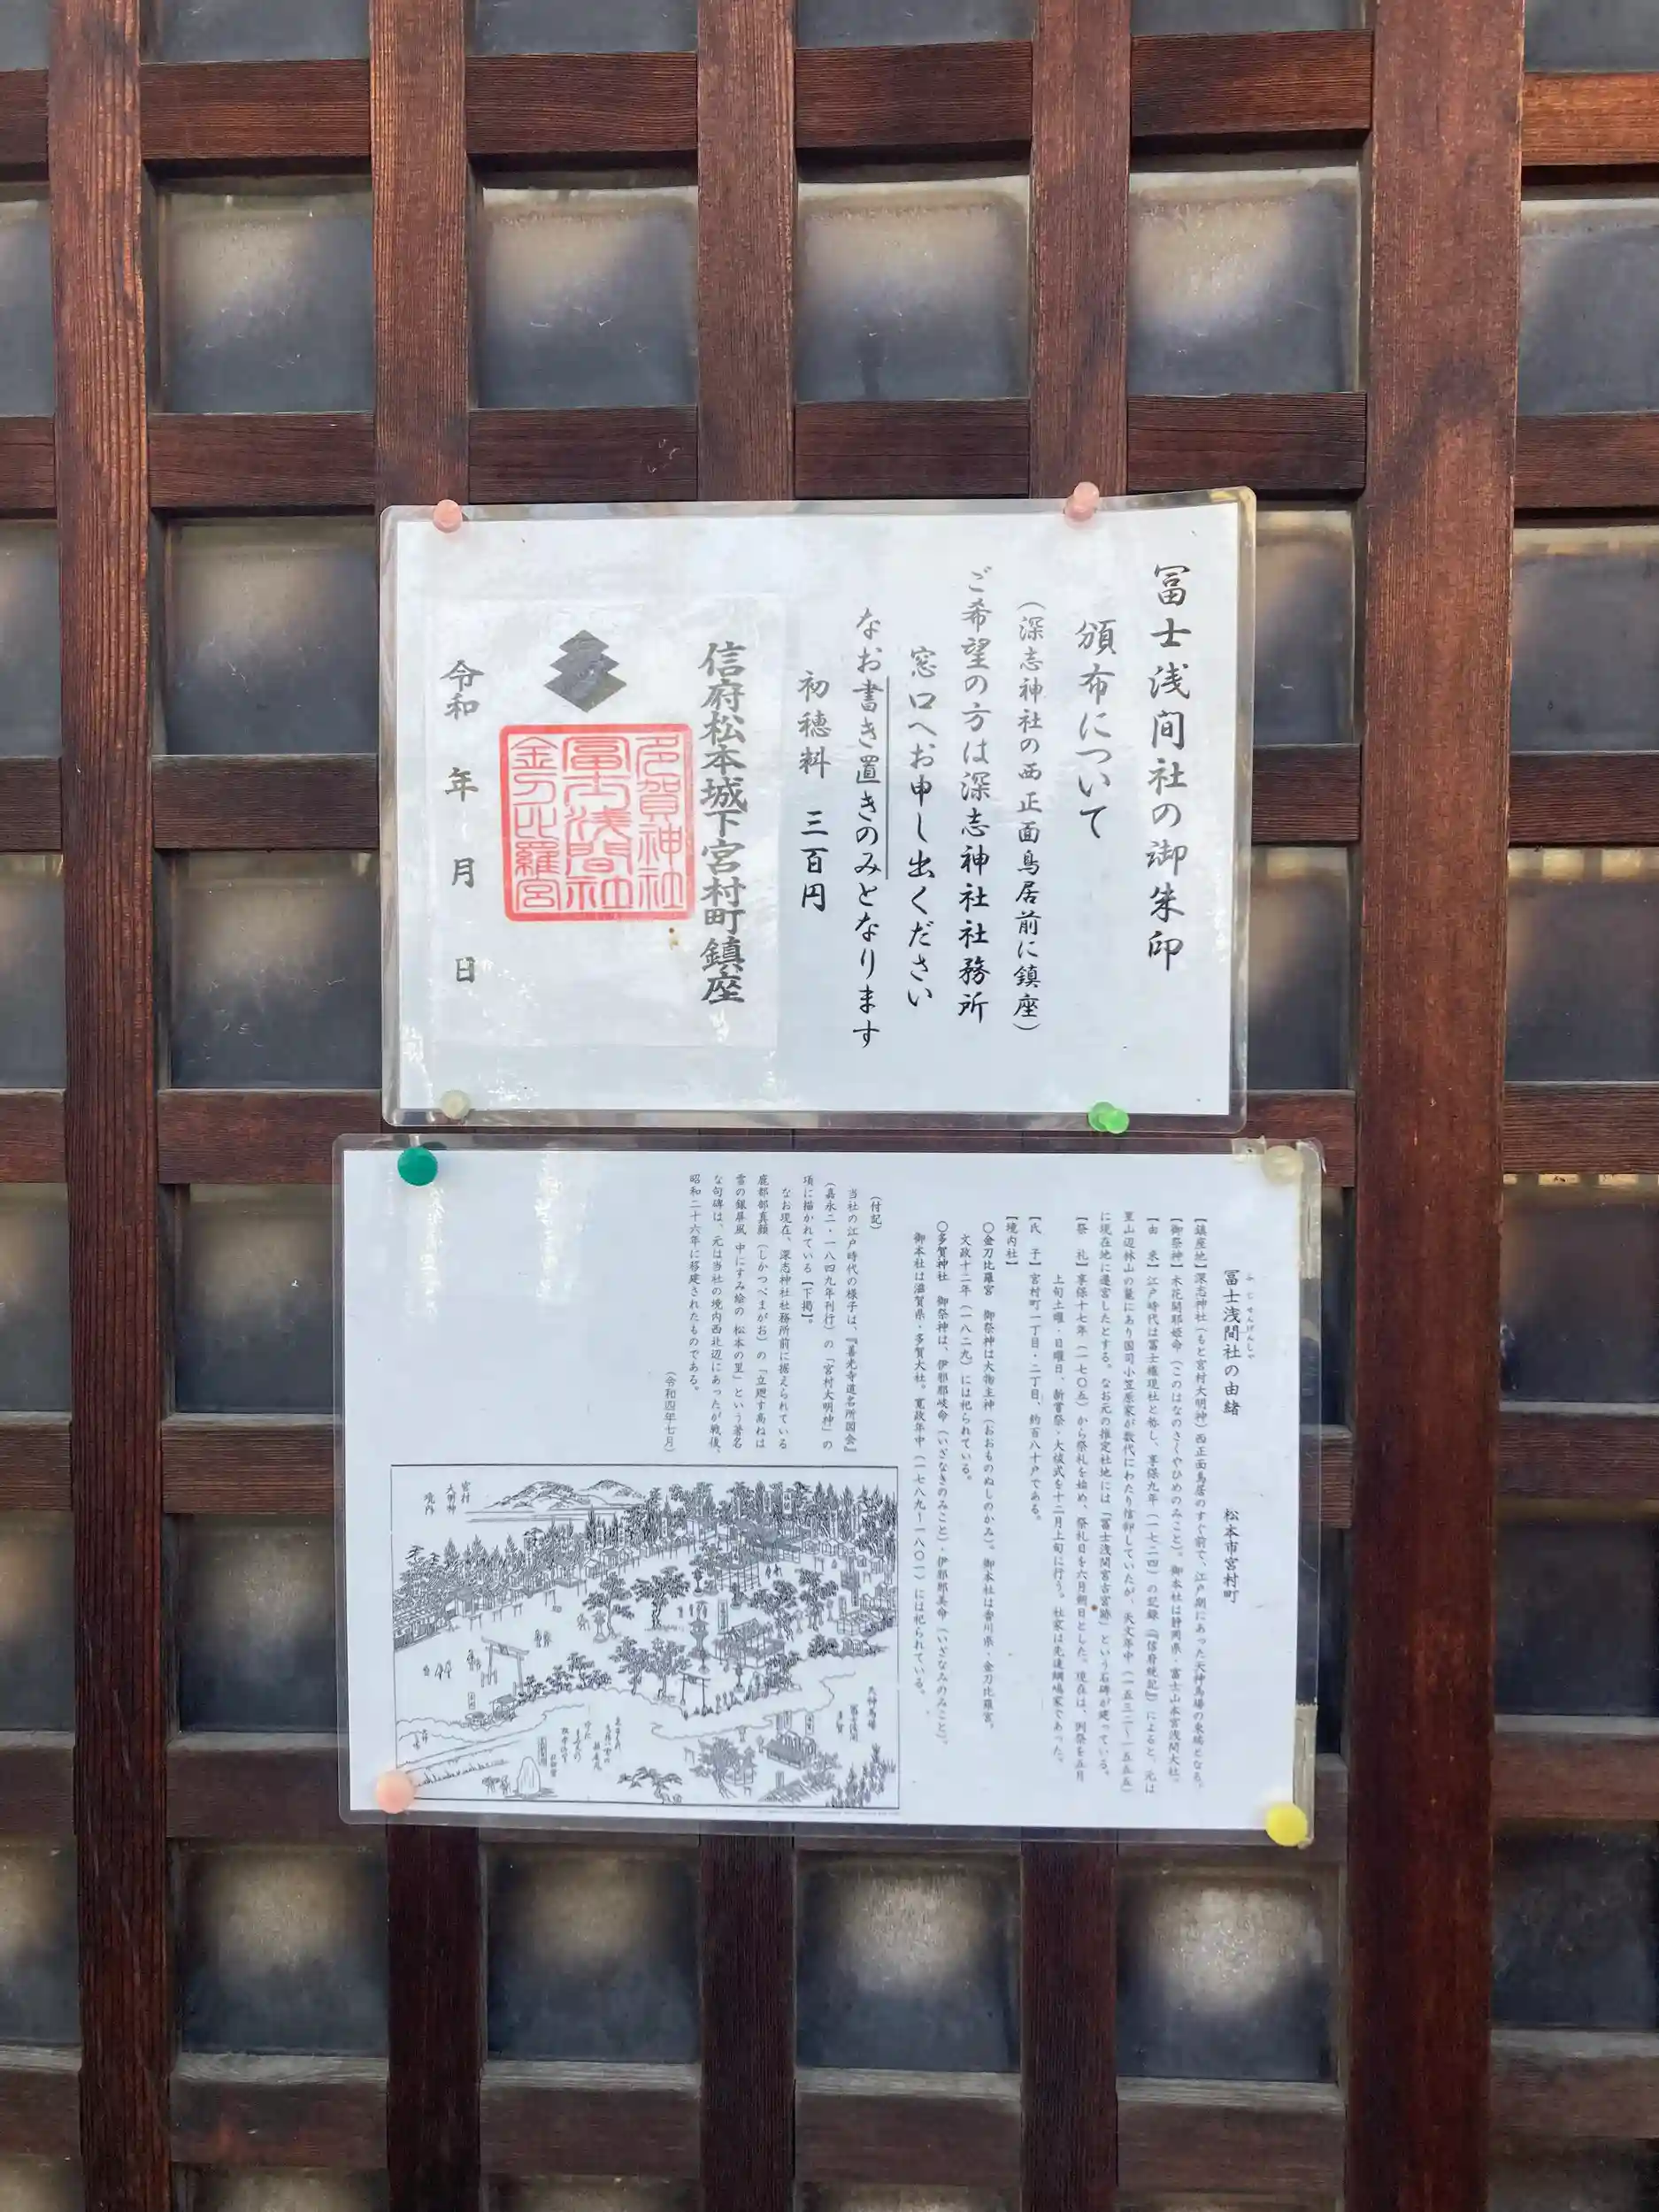 冨士浅间社の御朱印
頒布について
（深志神社の西正面鳥居前に鎮座）
ご希望の方は深志神社社務所
窓口へお申し出ください
なお書き置きのみとなります
初穂料　三百円
信府松本城下宮村町鎮座
多賀神社
冨士浅間社
金刀比羅宮
令和　年　月　日
冨士浅間社の由緒　松本市宮村町
ふじせんげんしゃ
【鎮座地】深志神社（もと宮村大明神）西正面鳥居のすぐ前で、江戸期にあった天神馬場の東端となる。
【御祭神】木花開耶姫命（このはなのさくやひめのみこと）。御本社は静岡県・富士山本宮浅間大社。
【由　来】江戸時代は冨士権現社と称し、享保九年（一七二四）の記録（『信府統記』）によると、元は
里山辺林山の麓にあり国司小笠原家が数代にわたり信仰していたが、天文年中（一五三二～一五五五）
に現在地に遷宮したとする。なお元の推定社地には「冨士浅間宮古宮跡」という石碑が建っている。
【祭　礼】享保十七年（一七〇五）から祭礼を始め、祭礼日を六月朔日とした。現在は、例祭を五月
上旬土曜・日曜日、新嘗祭・大祓式を十二月上旬に行う。社家は先達綱嶋家であった。
【氏　子】宮村町一丁目・二丁目、約百八十戸である。
【境内社】
〇金刀比羅宮　御祭神は大物主神（おおものぬしのかみ）。御本社は香川県・金刀比羅宮。
文政十二年（一八二九）には祀られている。
〇多賀神社　御祭神は、伊邪那岐命（いざなきのみこと）・伊邪那美命（いざなみのみこと）。
御本社は滋賀県・多賀大社。寛政年中（一七八九～一八〇一）には祀られている。
（付記）
当社の江戸時代の様子は、『善光寺道名所図会』
（嘉永二・一八四九年刊行）の「宮村大明神」の
項に描かれている【下掲】。
なお現在、深志神社社務所前に据えられている
鹿都部真顔（しかつべまがお）の「立廻す高ねは
雪の銀屏風 中にすみ絵の 松本の里」という著名
な句碑は、元は当社の境内西北辺にあったが戦後、
昭和二十六年に移建されたものである。
（令和四年七月）
宮村
大明神
境内
天神馬場
冨士浅間